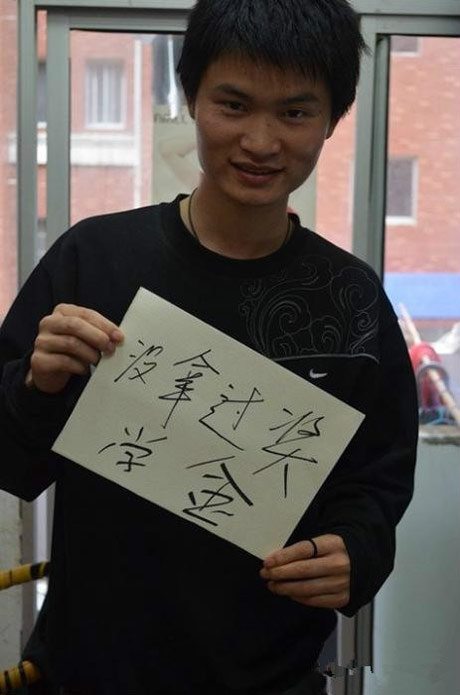 没拿过奖
学金